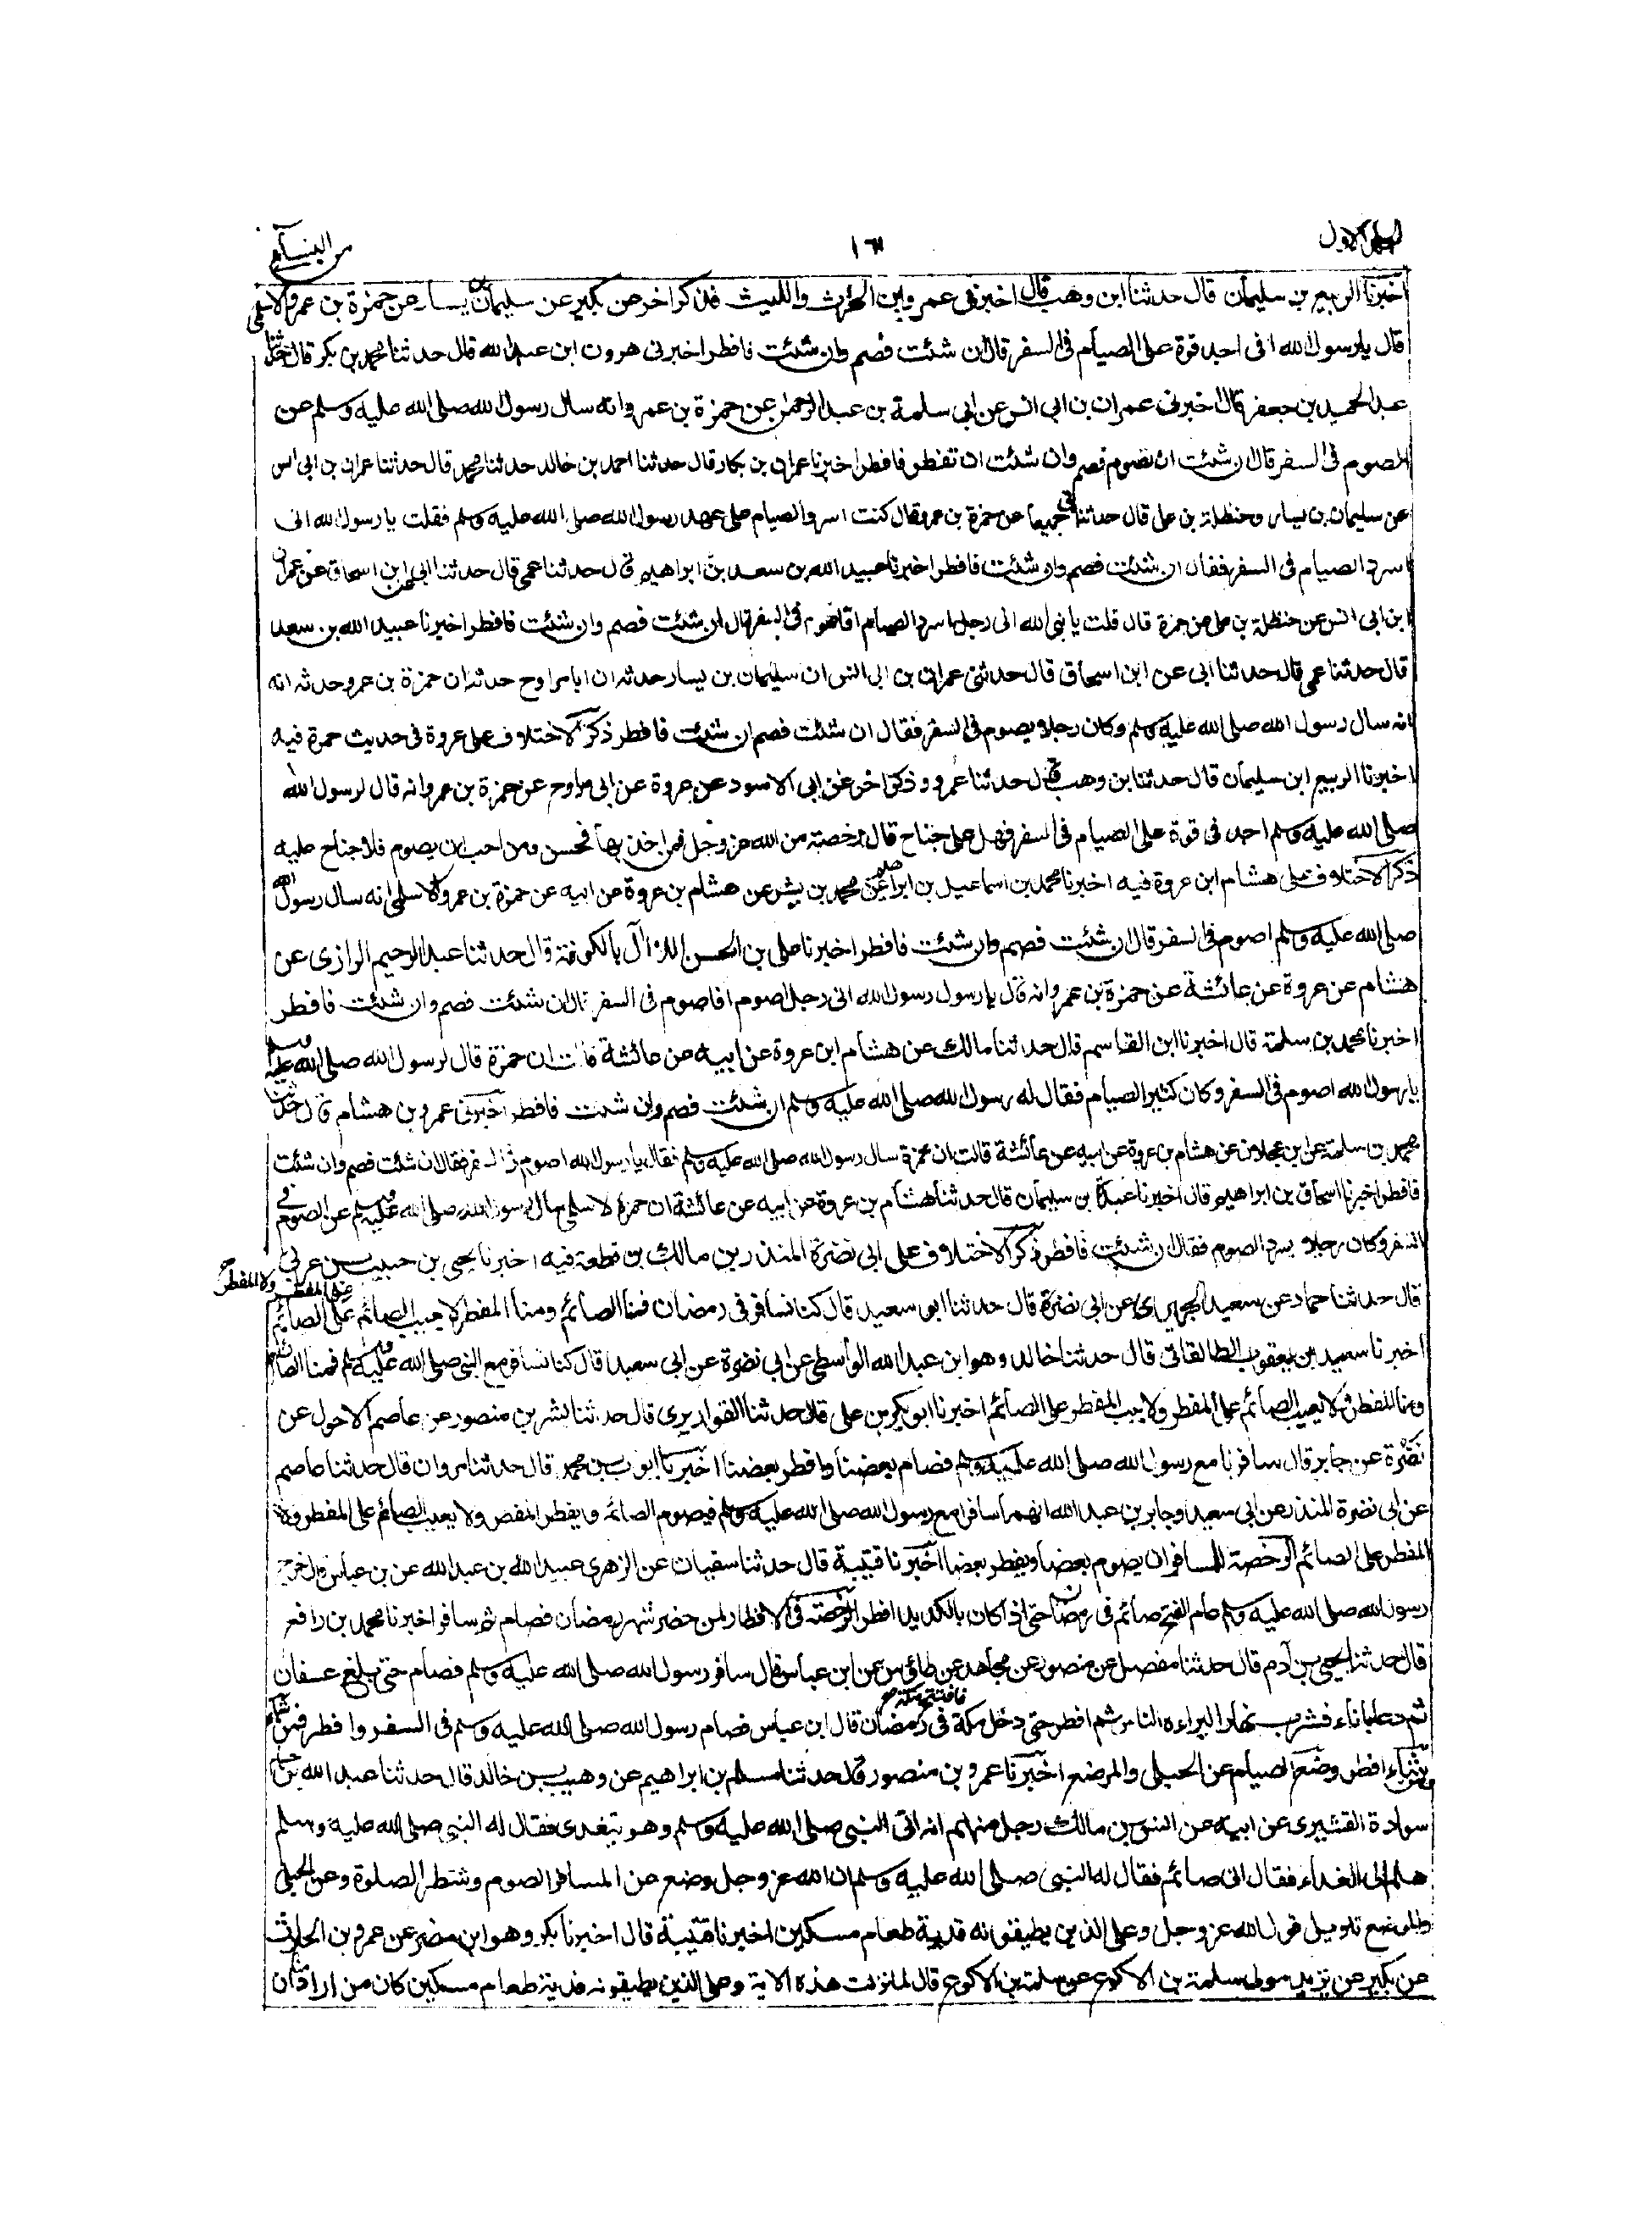 المجلد الاول
من النسائي
اخبرنا الربيع بن سليمان قال حدثنا ابن وهب قال اخبرني عمرو بن الحرث والليث فذكر اخر عن بكير عن سليمان بن يسار عن حمزة بن عمرو الاسلمي
قال يا رسول الله اني اجد قوة على الصيام في السفر قال ان شئت فصم وان شئت فافطر اخبرني هرون ابن عبد الله قال حدثنا محمد بن بكر قال حدثنا
عبد الحميد بن جعفر قال اخبرني عمران بن ابي انس عن ابي سلمة بن عبد الرحمن عن حمزة بن عمرو انه سال رسول الله صلى الله عليه وسلم عن
الصوم في السفر قال ان شئت ان تصوم فصم وان شئت ان تفطر فافطر اخبرنا عمران بن بكار قال حدثنا احمد بن خالد حدثنا محمد قال حدثنا عمران بن ابي انس
عن سليمان بن يسار وحنظلة بن على قال حدثنا ني جميعا عن حمزة بن عمرو قال كنت اسرد الصيام على عهد رسول الله صلى الله عليه وسلم فقلت يا رسول الله اني
اسرد الصيام في السفر فقال ان شئت فصم وان شئت فافطر اخبرنا عبيد الله بن سعد بن ابراهيم قال حدثنا عمي قال حدثنا ابي عن ابن اسحاق عن عمران
ابن ابي انس عن حنظلة بن على عن حمزة قال قلت يا نبي الله اني رجل اسرد الصيام افاصوم في السفر قال ان شئت فصم وان شئت فافطر اخبرنا عبيد الله بن سعد
قال حدثنا عمي قال حدثنا ابي عن ابن اسحاق قال حدثني عمران بن ابي انس ان سليمان بن يسار حدثه ان ابا مراوح حدثه ان حمزة بن عمرو حدثه انه
انه سال رسول الله صلى الله عليه وسلم وكان رجلا يصوم في السفر فقال ان شئت فصم ان شئت فافطر ذكر الاختلاف على عروة في حديث حمزة فيه
اخبرنا الربيع ابن سليمان قال حدثنا بن وهب قال حدثنا عمرو وذكر اخر عن ابي الاسود عن عروة عن ابي مراوح عن حمزة بن عمرو انه قال لرسول الله
صلى الله عليه وسلم اجد في قوة على الصيام في السفر فهل على جناح قال رخصة من الله عز وجل فمن اخذ بها فحسن ومن احب ان يصوم فلا جناح عليه
ذكر الاختلاف على هشام ابن عروة فيه اخبرنا محمد بن اسماعيل بن ابراهيم عن محمد بن بشر عن هشام بن عروة عن ابيه عن حمزة بن عمرو الاسلمي انه سال رسول الله
صلى الله عليه وسلم اصوم في السفر قال ان شئت فصم وان شئت فافطر اخبرنا على بن الحسن اللال بالكوفة قال حدثنا عبد الرحيم الرازي عن
هشام عن عروة عن عائشة عن حمزة بن عمرو انه قال يا رسول رسول الله اني رجل اصوم افاصوم في السفر قال ان شئت فصم وان شئت فافطر
اخبرنا محمد بن سلمة قال اخبرنا ابن القاسم قال حدثنا مالك عن هشام ابن عروة عن ابيه عن عائشة قالت ان حمزة قال لرسول الله صلى الله عليه وسلم
يا رسول الله اصوم في السفر وكان كثير الصيام فقال له رسول الله صلى الله عليه وسلم ان شئت فصم وان شئت فافطر اخبرني عمرو بن هشام قال حدثنا
محمد بن سلمة عن ابن عجلان عن هشام بن عروة عن ابيه عن عائشة قالت ان حمزة سال رسول الله صلى الله عليه وسلم فقال يا رسول الله اصوم في السفر فقال ان شئت فصم وان شئت
فافطر اخبرنا اسحاق بن ابراهيم قال اخبرنا عبدة بن سليمان قال حدثنا هشام بن عروة عن ابيه عن عائشة ان حمزة لاسلمي سال رسول الله صلى الله عليه وسلم عن الصوم في
السفر وكان رجلا يسرد الصوم فقال ان شئت فافطر ذكر الاختلاف على ابي نضرة المنذر بن مالك بن قطعة فيه اخبرنا يحيى بن حبيب بن عربي
قال حدثنا حماد عن سعيد الجريري عن ابي نضرة قال حدثنا ابو سعيد قال كنا نسافر في رمضان فمنا الصائم ومنا المفطر لا يعيب الصائم على المفطر ولا المفطر على الصائم
اخبرنا سعيد بن يعقوب الطالقاني قال حدثنا خالد وهو ابن عبد الله الواسطي عن ابي نضرة عن ابي سعيد قال كنا نسافر مع النبي صلى الله عليه وسلم فمنا الصائم
ومنا المفطر لا يعيب الصائم على المفطر ولا يعيب المفطر على الصائم اخبرنا ابو بكر بن على قال حدثنا القواريري قال حدثنا بشر بن منصور عن عاصم الاحول عن
نضرة عن جابر قال سافرنا مع رسول الله صلى الله عليه وسلم فصام بعضنا وافطر بعضنا اخبرنا ايوب بن محمد قال حدثنا مروان قال حدثنا عاصم
عن ابي نضرة المنذر عن ابي سعيد وجابر بن عبد الله انهما سافرا مع رسول الله صلى الله عليه وسلم فيصوم الصائم ويفطر المفطر ولا يعيب الصائم على المفطر ولا
المفطر على الصائم الرخصة للمسافر ان يصوم بعضا ويفطر بعضا اخبرنا قتيبة قال حدثنا سفيان عن الزهري عبيد الله بن عبد الله عن بن عباس قال خرج
رسول الله صلى الله عليه وسلم عام الفتح صائم في رمضان حتى اذا كان بالكديد افطر الرخصة في الافطار لمن حضر شهر رمضان فصام ثم سافر اخبرنا محمد بن رافع
قال حدثنا يحيى بن آدم قال حدثنا مفصل عن منصور عن مجاهد عن طاؤس عن ابن عباس قال سافر رسول الله صلى الله عليه وسلم فصام حتى بلغ عسفان
ثم دعا باناء فشرب نهارا ليراه الناس ثم افطر حتى دخل مكة فافتتح مكة في رمضان قال ابن عباس فصام رسول الله صلى الله عليه وسلم في السفر وافطر فمن شاء صام
ومن شاء افطر وضع الصيام عن الحبلى والمرضع اخبرنا عمرو بن منصور قال حدثنا مسلم بن ابراهيم عن وهيب بن خالد قال حدثنا عبد الله بن
سوادة القشيري عن ابيه عن انس بن مالك رجل منهم انه اتى النبي صلى الله عليه وسلم وهو يتغدى فقال له النبي صلى الله عليه وسلم
هلم الى الغداء فقال اني صائم فقال له النبي صلى الله عليه وسلم ان الله عز وجل وضع عن المسافر الصوم وشطر الصلوة وعن الحبلى
والمرضع تاويل قول الله عز وجل وعلى الذين يطيقونه فدية طعام مسكين اخبرنا قتيبة قال اخبرنا بكر وهو ابن مضر عن عمرو بن الحارث
عن بكير عن يزيد مولى سلمة بن الاكوع عن سلمة بن الاكوع قال لما نزلت هذه الاية وعلى الذين يطيقونه فدية طعام مسكين كان من اراد منا ان